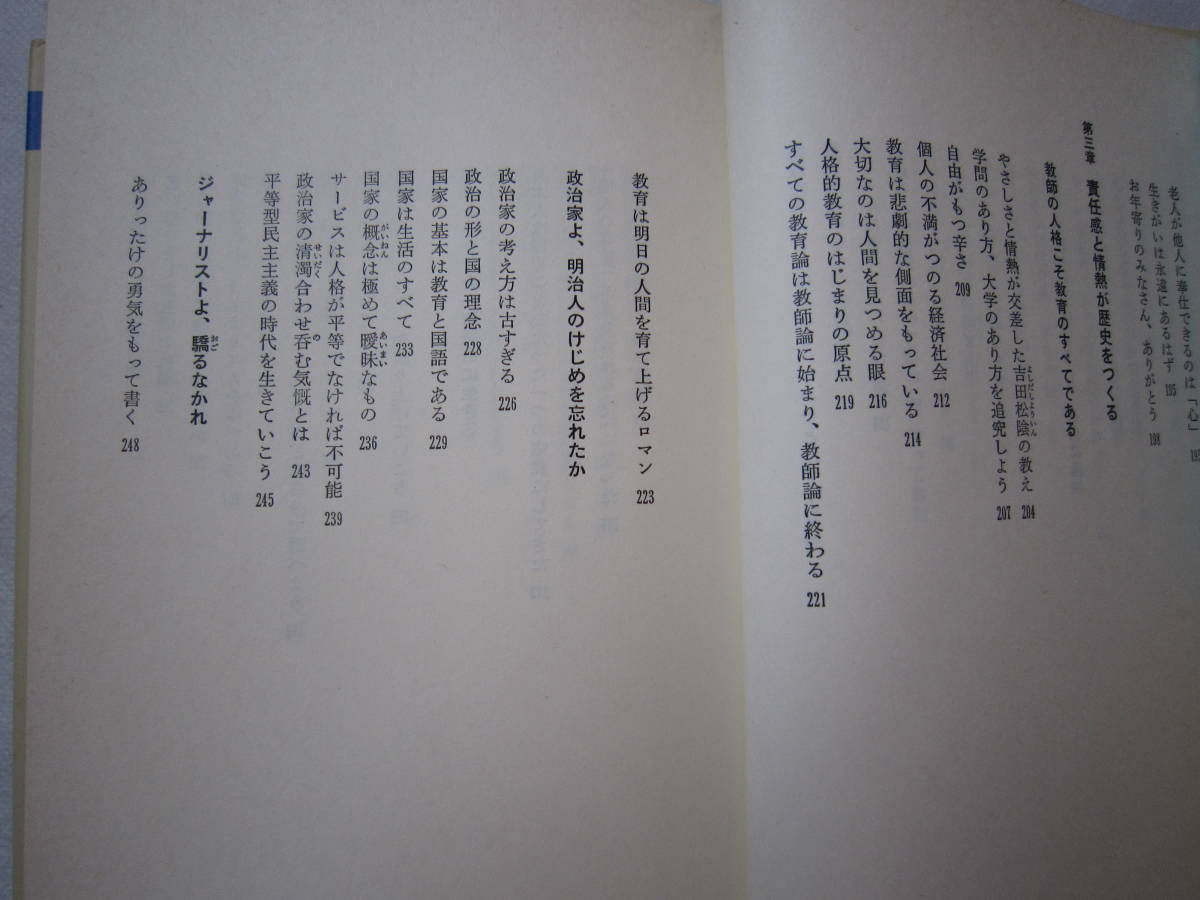 老人が他人に奉仕できるのは「心」
生きがいは永遠にあるはず 195
お年寄りのみなさん、ありがとう 198
第三章 責任感と情熱が歴史をつくる
教師の人格こそ教育のすべてである
やさしさと情熱が交差した吉田松陰の教え 204
学問のあり方、大学のあり方を追究しよう 207
自由がもつ辛さ 209
個人の不満がつのる経済社会 212
教育は悲劇的な側面をもっている 214
大切なのは人間を見つめる眼 216
人格的教育のはじまりの原点 219
すべての教育論は教師論に始まり、教師論に終わる 221
教育は明日の人間を育て上げるロマン 223
政治家よ、明治人のけじめを忘れたか
政治家の考え方は古すぎる 226
政治の形と国の理念 228
国家の基本は教育と国語である 229
国家は生活のすべて 233
国家の概念は極めて曖昧なもの 236
サービスは人格が平等でなければ不可能 239
政治家の清濁合わせ呑む気慨とは 243
平等型民主主義の時代を生きていこう 245
ジャーナリストよ、驕るなかれ
ありったけの勇気をもって書く 248